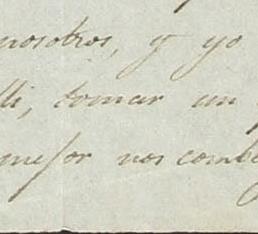 nosotros, y yo
lli, tomar un
mejor nos comb